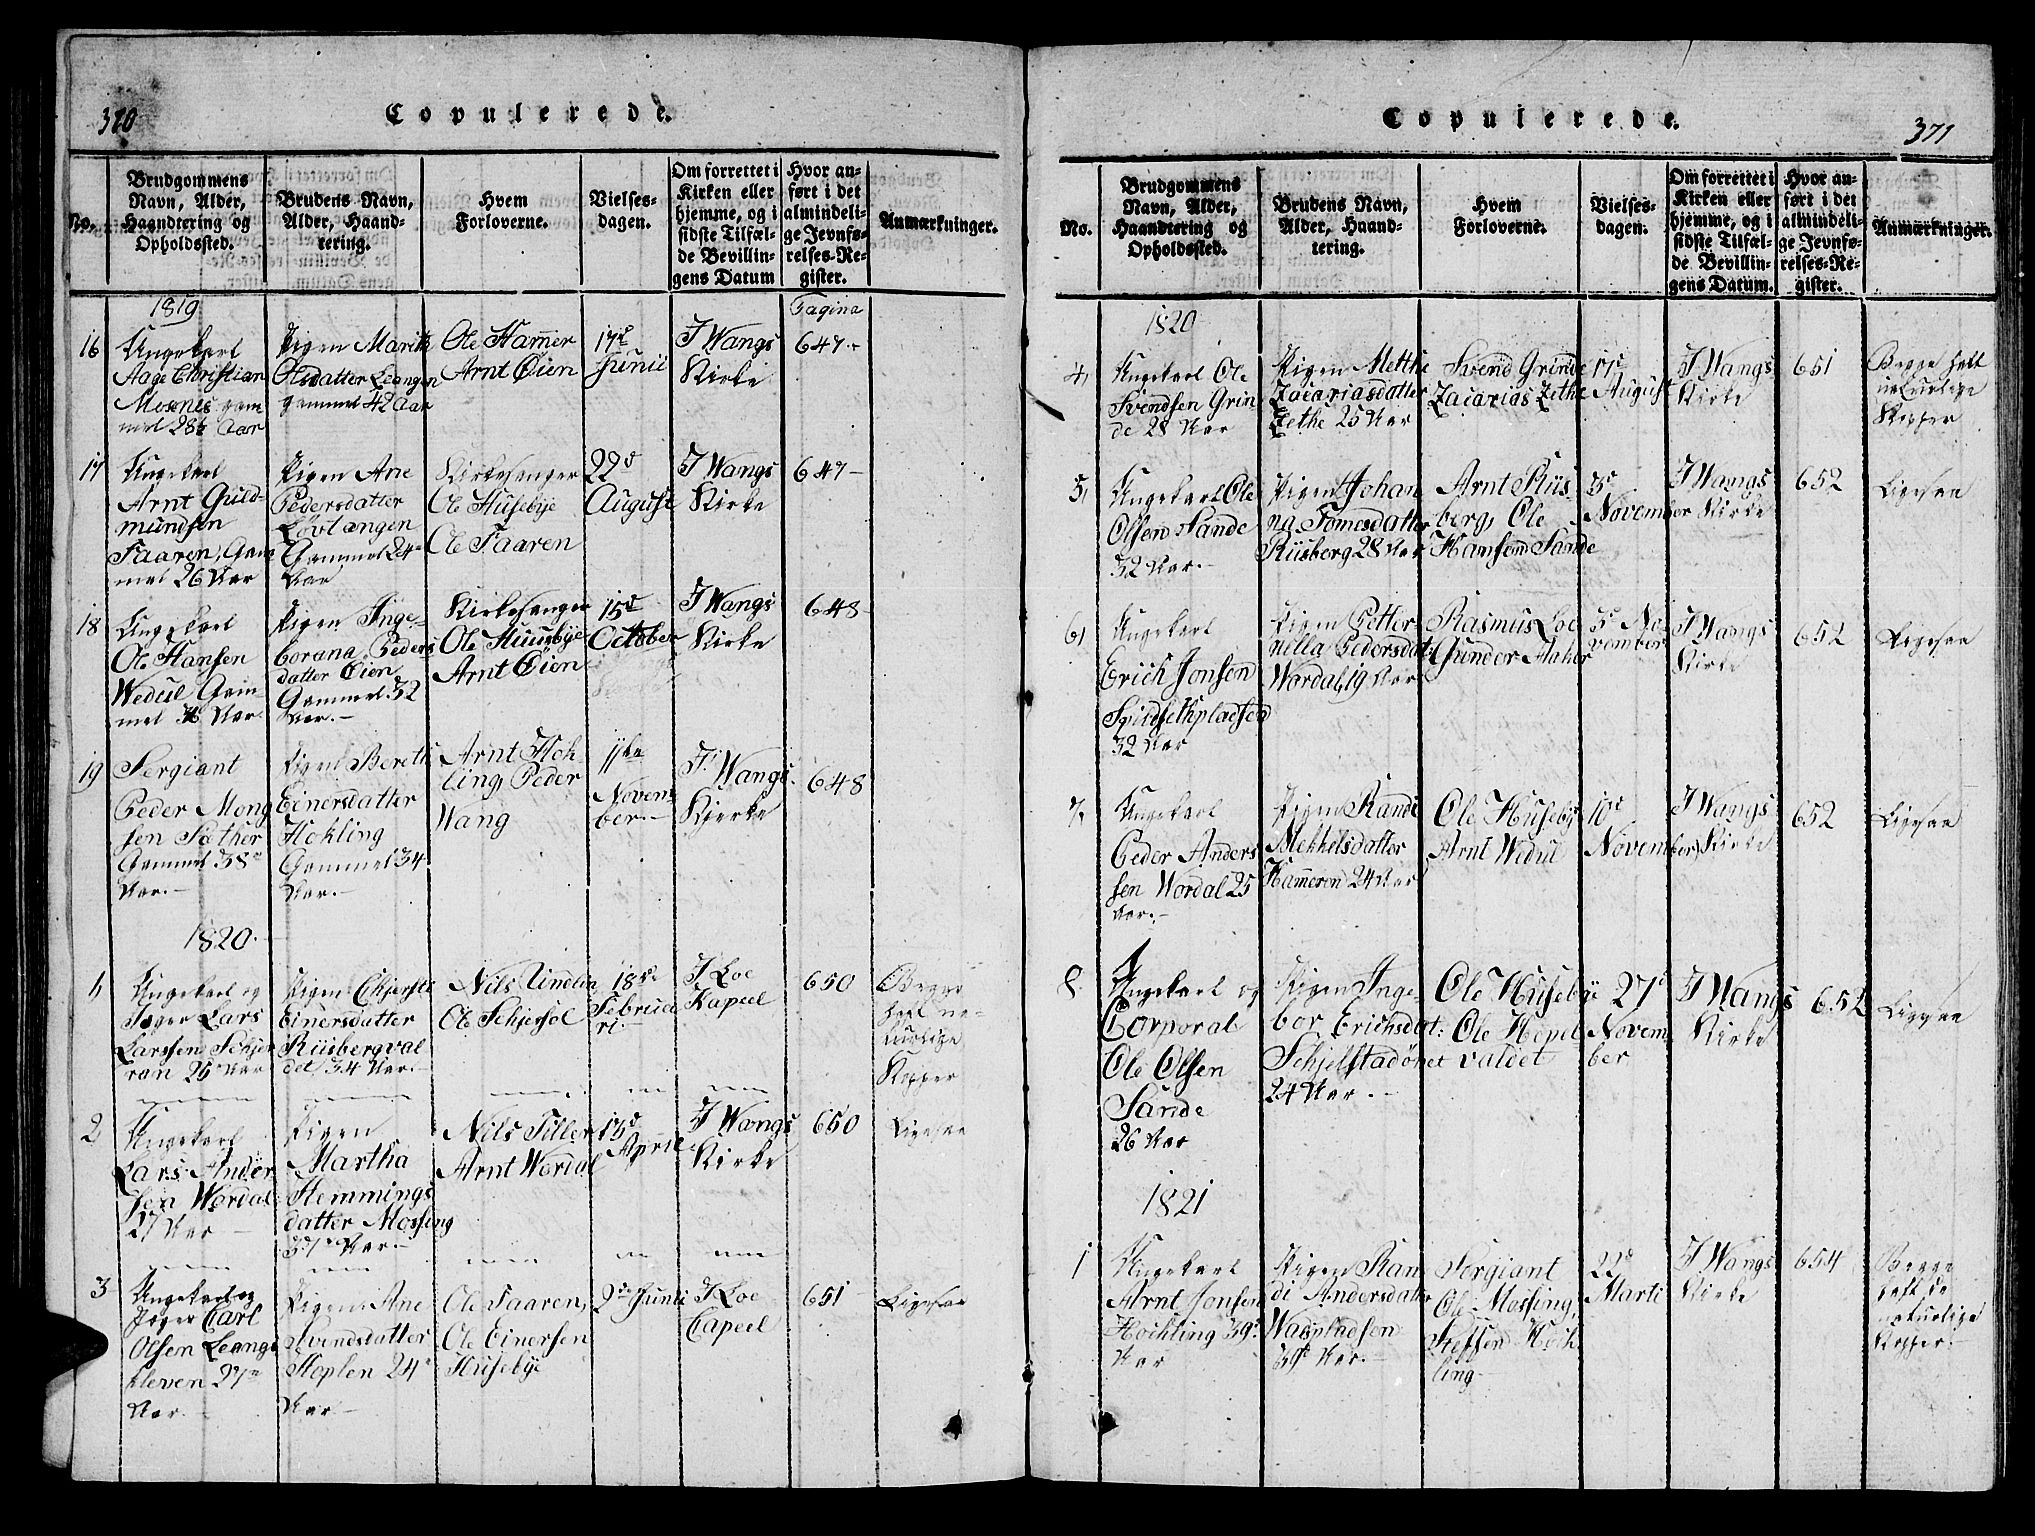 370
Copulerede.
No.
Brudgommens
Navn, Alder,
Haandtering og
Opholdssted.
Brudens Navn,
Alder, Haand-
tering.
Hvem
Forloverne.
Vielses-
dagen.
Om forrettet i
Kirken eller
hjemme, og i
sidste Tilfæl-
de Bevillin-
gens Datum
Hvor an-
ført i det
almindeli-
ge Jevnfø-
relses-Re-
gister.
Anmærkninger.
1819
Pagina
16
Ungekarl
Aage Christian
Mosnes gam
mel 28½ Aar
Pigen Marith
Olsdatter Leangen
gammel 42 Aar
Ole Hamer
Arnt Öien
17d
Junii
I Wangs
Kirke
647-
17
Ungekarl
Arnt Guld-
mundsen
Faaren, Gam
mel 26 Aar
Pigen Ane
Pedersdatter
Løvtangen
Gammel 24
Aar
Kirkesanger
Ole Husebye
Ole Faaren
22d
August
I Wangs
Kirke
647-
18
Ungekarl
Ole Hansen
Wedul Gam
mel Aar
Pigen Inge-
borana Peders
datter Öien
Gammel 32
Aar.-
Kirkesanger
Ole Huusbye
Arnt Öien
15d
October
I Wangs
Kirke
648-
19
Sergiant
Peder Mong
sen Sather
Gammel 38
Aar.-
Pigen Bereth
Einersdatter
Hokling
Gammel 34
Aar.-
Arnt Hok
ling, Peder
Wang
Novem
ber.-
I Wangs
Kjerke
648
1820.
1,
Ungekarl og
Jæger Lars
Larssen Schjer
ran 25 Aar
Pigen Chjersti
Einersdatter
Riisbergval
det 34 Aar.-
Nils Undlin
Ole Schjessol
18de
Februa
ri.-
I Loe
Kapeel
650
Begge
haft na-
turlige
Kopper
2
Ungekarl
Lars Ander
sen Wordal
27 Aar
Pigen
Martha
Hemmings
datter Mossing
37 Aar.-
Nils Tiller
Arnt Wordal
13d
April
I Wangs
Kirke
650
Ligesaa
3
Ungekarl og
Jæger Carl
Olsen Leangs
kleven 27
Aar.
Pigen Ane
Svendsdatter
Hoplen 24
Aar.-
Ole Faaren,
Ole Einersen
Husebye
2d Junii
I Loe
Capeel
651
Ligesaa
371
Copulerede.
No.
Brudgommens
Navn, Alder,
Haandtering og
Opholdssted.
Brudens Navn,
Alder, Haand-
tering.
Hvem
Forloverne.
Vielses-
dagen.
Om forrettet i
Kirken eller
hjemme, og i
sidste Tilfæl-
de Bevillin-
gens Datum.
Hvor an-
ført i det
almindeli-
ge Jevnfø-
relses-Re-
gister.
Anmærkninger.
1820
4,
Ungekarl Ole
Svendsen Grin
de 28 Aar
Pigen Mette
Zacariasdatter
Lethe 25 Aar
Svend Grinde
Zacarias Lethe
17d
August
I Wangs
Kirke
651
Begge haft
naturlige
Kopper
5,
Ungekarl Ole
Olsen Sande
32 Aar.-
Pigen Johan
na Tomesdatter
Riisberg 28 Aar
Arnt Riis
berg, Ole
Hansen Sande
3d
November
I Wangs
Kirke
652
Ligesaa
6,
Ungekarl
Erich Jonsen
Spidsethpladsen
32 Aar
Pigen Petter
nella Pedersdat:
Wordal, 19 Aar
Rasmus Loe
Gunder Aaker
3d No
vember
I Wangs
Kirke
652
Ligesaa
7,
Ungekarl
Peder Anders
sen Wordal 25
Aar.-
Pigen Randi
Mekkelsdatter
Hameren 24 Aar
Ole Huseby
Arnt Wedul
10d
November
I Wangs
Kirke
652
Ligesaa
8.
Ungekarl og
Corporal
Ole Olsen
Sande
26 Aar
Pigen Inge-
bor Erichsdat:
Schjelstadönet
24 Aar.-
Ole Husebye
Ole Hepel
valdet
27d
Novem
ber
I Wangs
Kirke
652
Ligesaa
1821
1
Ungekarl
Arnt Jonsen
Hochling 39
Aar
Pigen Ran
di Andersdatter
Waspladsen
39 Aar.-
Sergiant
Ole Mossing,
Steffen Hoch
ling
22d
Marti
I Wangs
Kirke
654
Begge
haft de
naturlige
Kopper.-